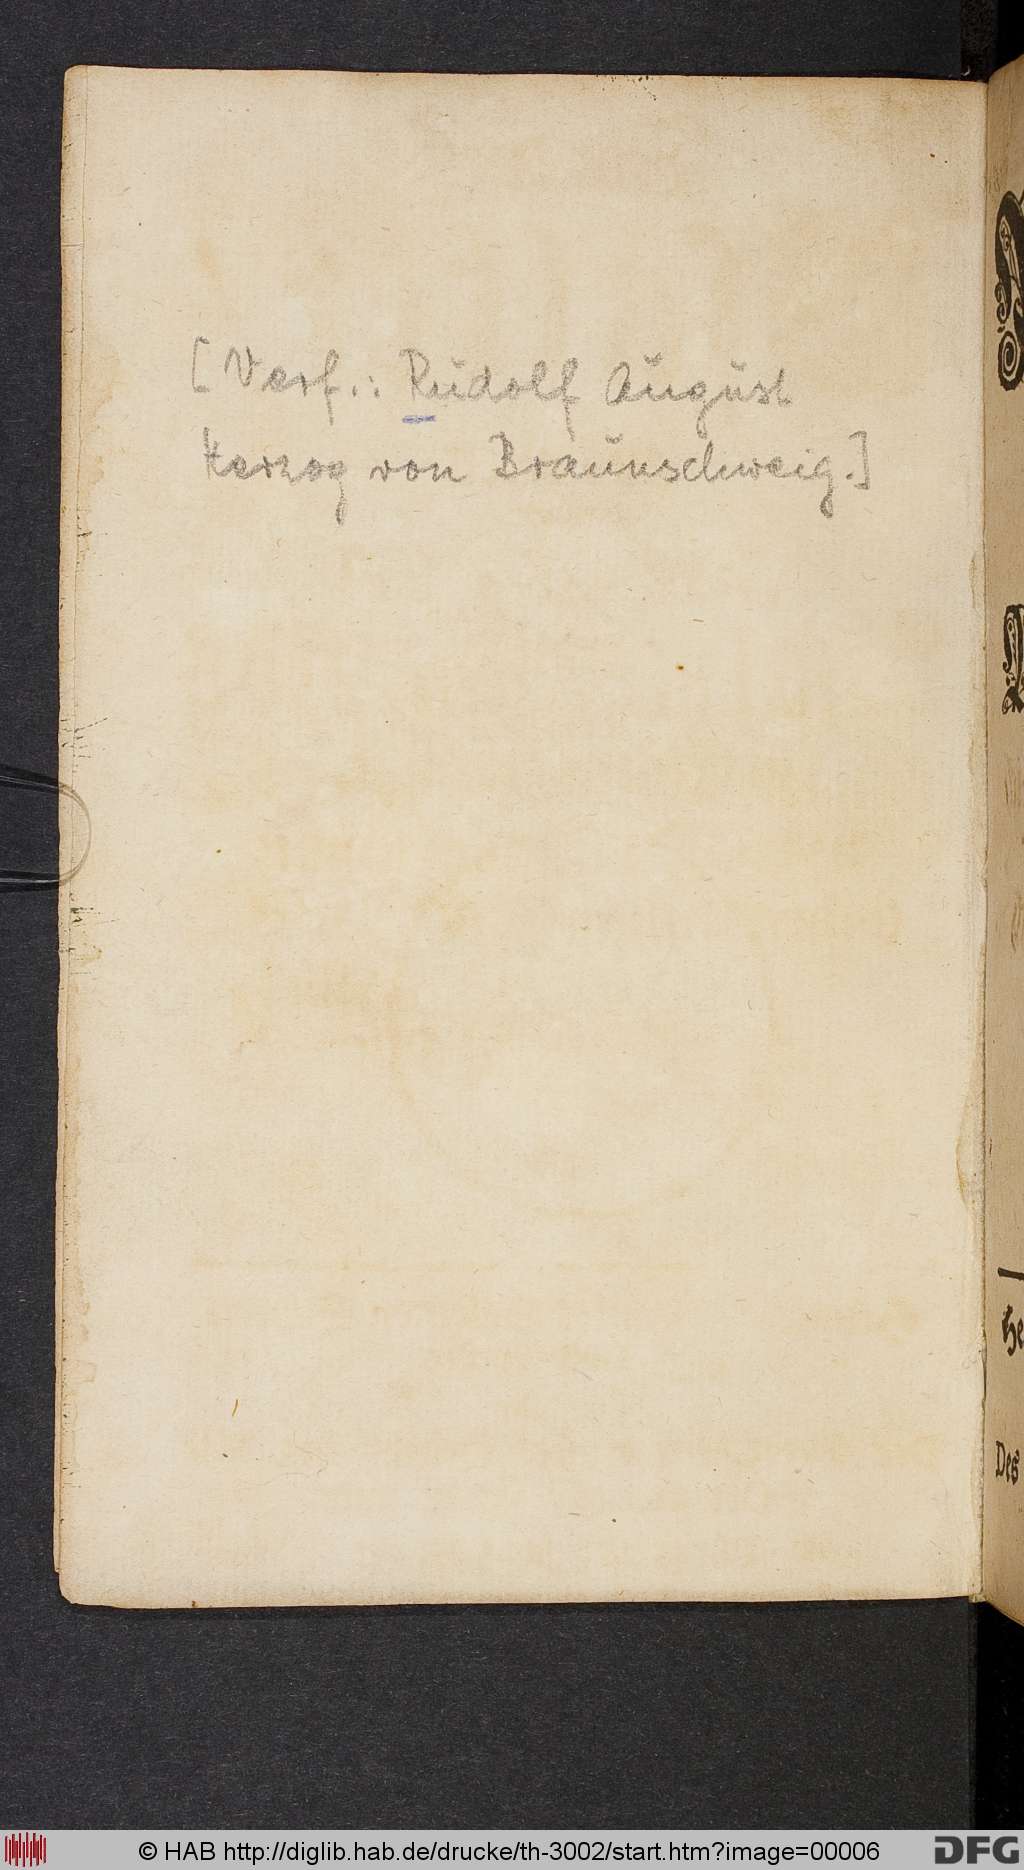 [Verf.: Rudolf August
Herzog von Braunschweig.]
He
Des
© HAB http://diglib.hab.de/drucke/th-3002/start.htm?image=00006
DFG